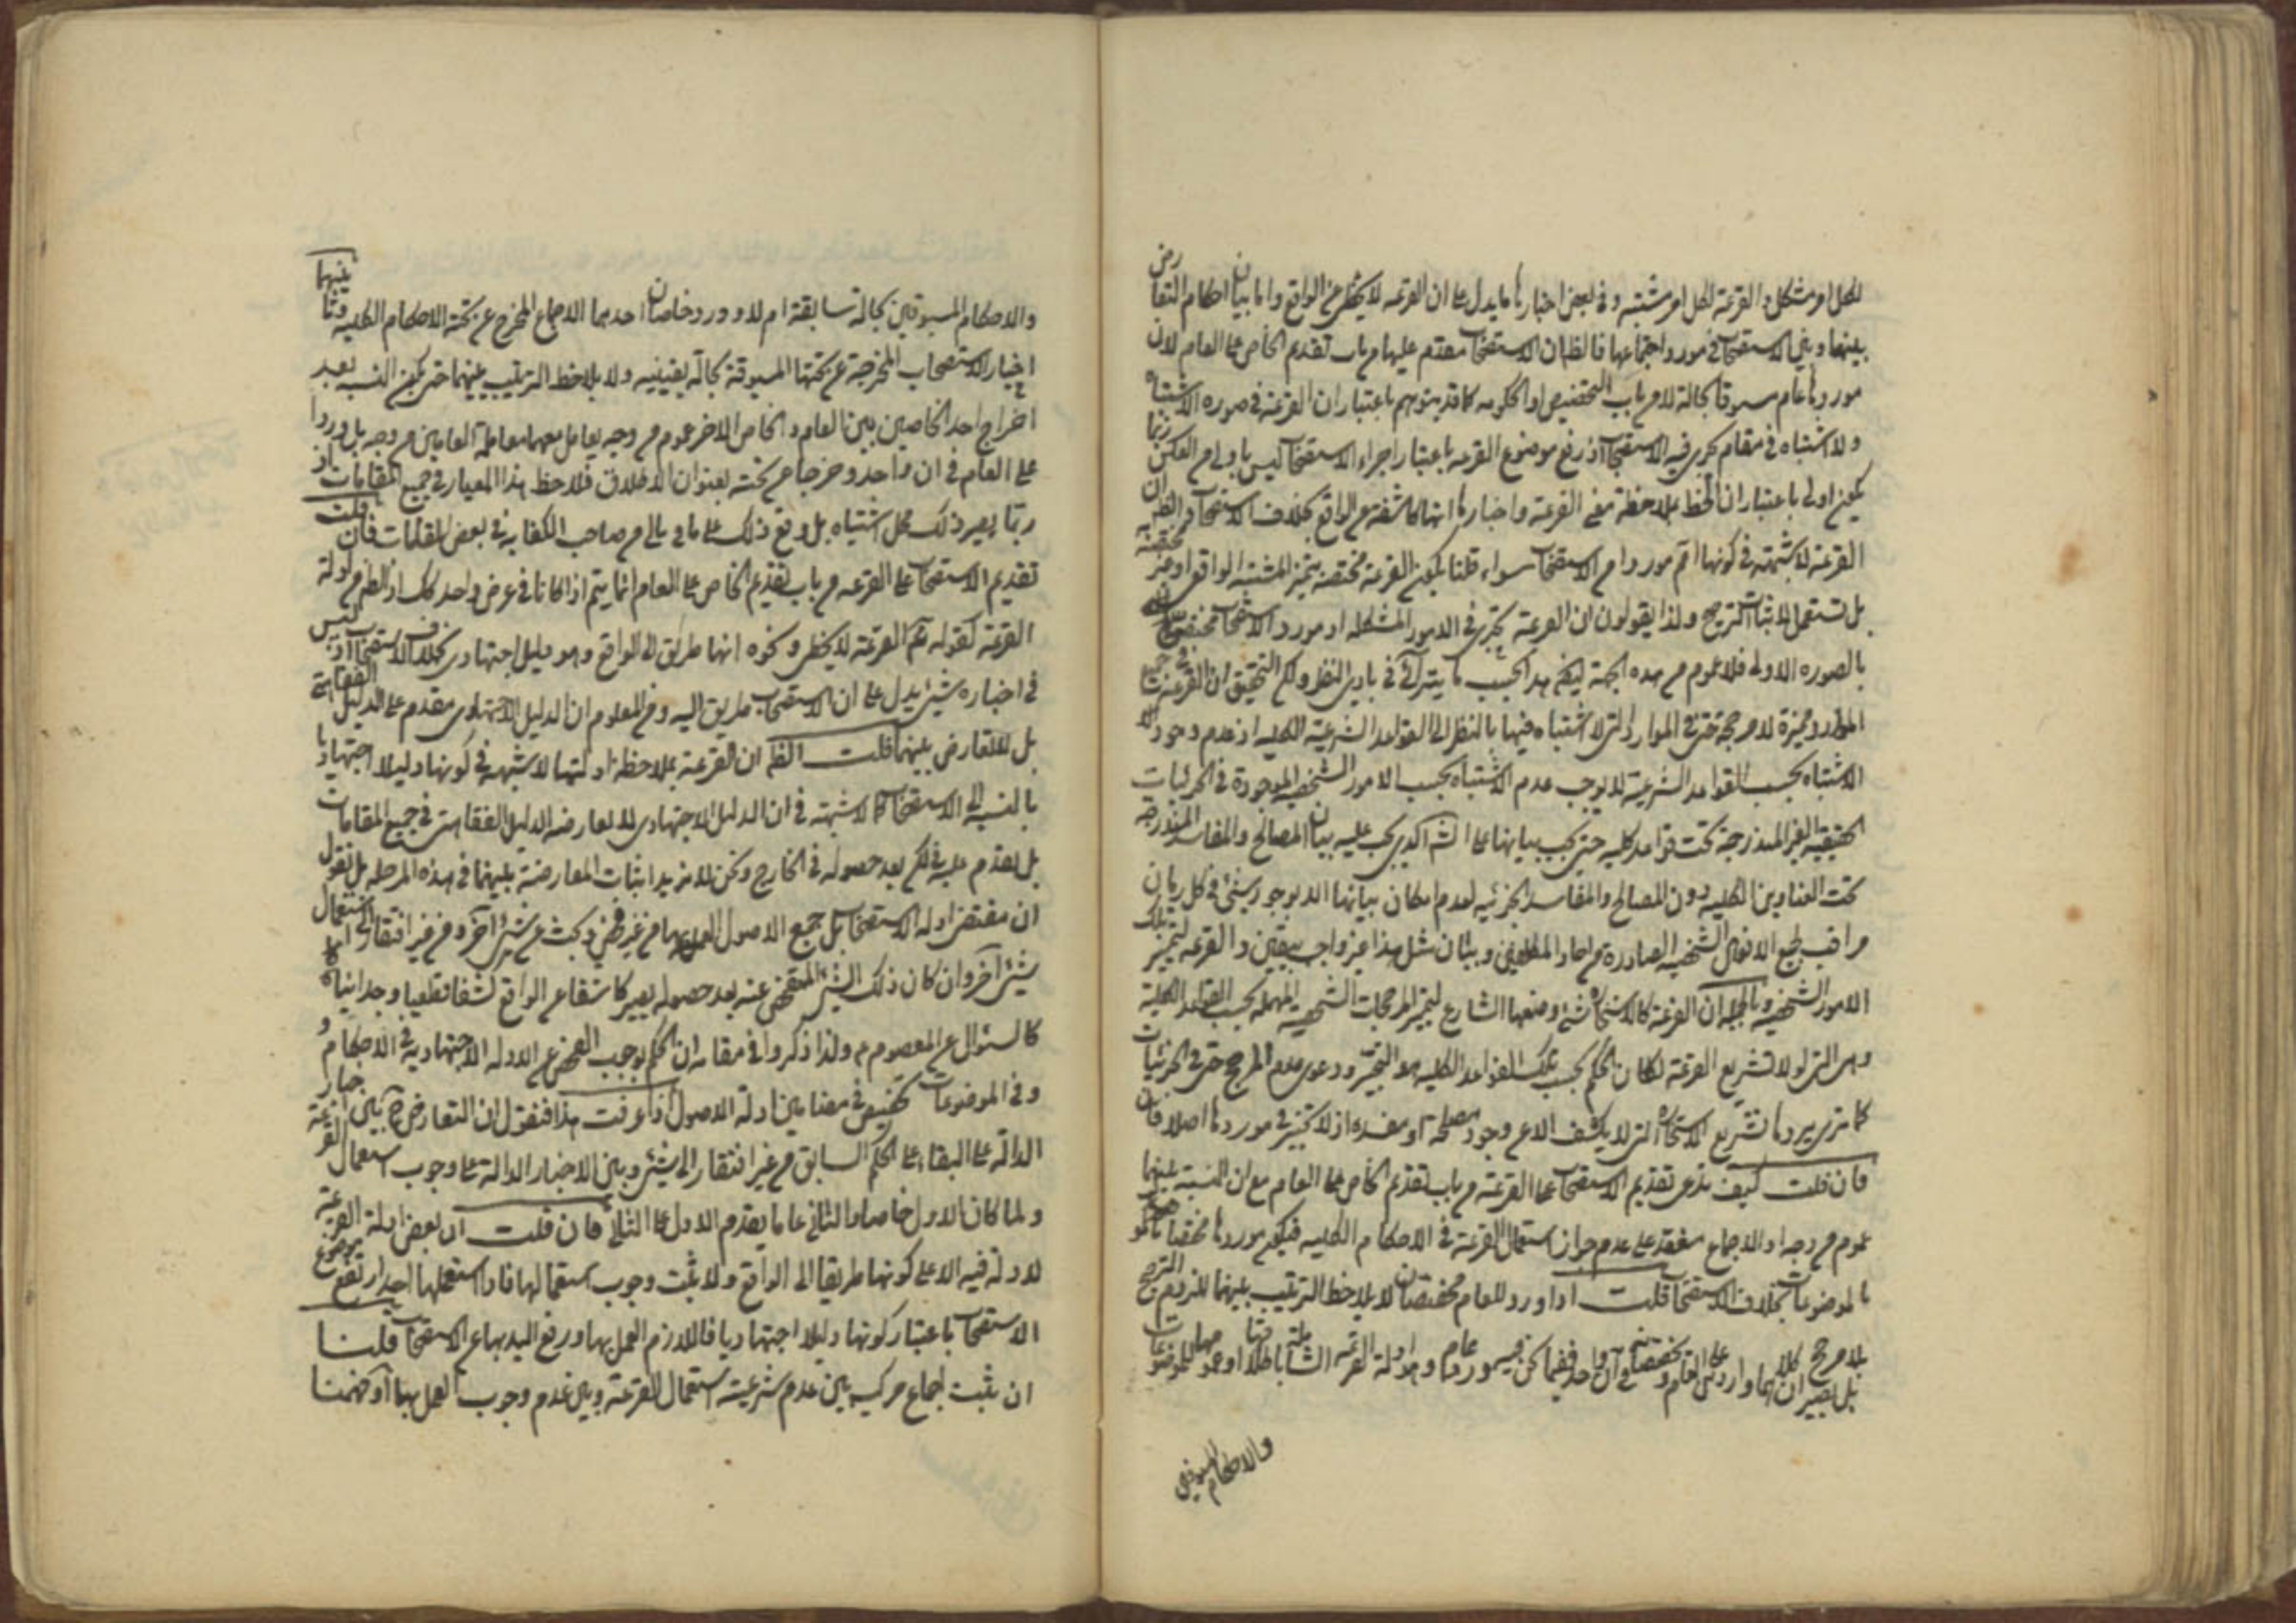 لكل امر مشكل والقرعة لكل امر مشتبه وفى بعض اخبارها ما يدل على ان القرعه لا يخطى عن الواقع واما بيان احكام التعارض
بينها وبين الاستصحاب فى مورد اجتماعها فالظ ان الاستصحاب مقدم عليها من باب تقديم الخاص على العام لان
موردها عام مسبوقا بحالة لا من باب التخصيص او الحكومه كما قد يتوهم باعتبار ان القرعة فى صوره الاشتباه
ولا اشتباه فى مقام يجرى فيه الاستصحاب اذ رفع موضوع القرعه باعتبار اجراء الاستصحاب ليس باولى من العكس ربما
يكون اولى باعتبار ان لحظ بملاحظة معنى القرعة واخبارها انها كاشفة عن الواقع بخلاف الاستصحاب فى الظ ان
القرعة لا شبهة فى كونها اعم موردا من الاستصحاب سواء قلنا بكون القرعة مختصة بتميز المشتبه الواقعى او غير مختصة
بل تستعمل لاثبات الترجيح ولذا يقولون ان القرعة تجرى فى الامور المشكله او مورد الاستصحاب مختص
بالصوره الاولى فلا عموم من هذه الجهة ليكن هذا بحسب ما يترائى فى بادى النظر ولكن التحقيق ان القرعة فى جميع
الموارد مميزة لا مرجحة حتى فى الموارد التى لا اشتباه فيها بالنظر الى القواعد الشرعية الكليه اذ عدم وجود
الاشتباه بحسب القواعد الشرعية لا يوجب عدم الاشتباه بحسب الامور الشخصية الموجودة فى الجزئيات
الحقيقية الغير المندرجة تحت قواعد كليه حتى يجب بيانها على الش الذى يجب عليه بيان المصالح والمفاسد المندرجة
تحت العناوين الكليه دون المصالح والمفاسد الجزئيه لعدم امكان بيانها الا بوجود شئ فى كل زمان
مراقب لجميع الافعال الشخصية الصادرة من احاد المكلفين وبيان مثل هذا غير واجب بيقين والقرعه لتميز تلك
الامور الشخصية وبالجملة ان القرعة كالاستخارة شئ وضعها الشارع لتميز المرجحات الشخصية المهملة بحسب القواعد الكلية
وهى التى لولا تشريع القرعة لكان الحكم بحسب تلك القواعد الكليه هو التخيير ودعوى عدم المرجح حتى فى الجزئيات
كما ترى يردها تشريع الاستخارة التى لا يكشف الا عن وجود مصلحة او مفسده اذ لا تخيير فى موردها اصلا فان
فان قلت كيف تدعى تقديم الاستصحاب على القرعة من باب تقديم الخاص على العام مع ان النسبة بينهما
عموم من وجه اذ الاجماع منعقد على عدم جواز استعمال القرعة فى الاحكام الكليه فيكون موردها مختصا
بالموضوعات بخلاف الاستصحاب قلت اذا ورد للعام مخصصان لا يلاحظ الترتيب بينهما للزوم الترجيح
بلا مرجح بل يصير ان كلاهما واردان على العام ومخصصان فى آن واحد ففيما نحن فيه ورد عام وهو ادلة القرعة الشاملة باطلاقها او عمومها للموضوعات
والاحكام المسبوقين
والاحكام المسبوقين بحالة سابقة ام لا وورد خاصان احدهما الاجماع المخرج عن تحته الاحكام الكليه وثانيهما
اخبار الاستصحاب المخرجة عن تحتها المسبوقة بحالة يقينيه ولا يلاحظ الترتيب بينهما حتى يكون النسبه بعد
اخراج احد الخاصين بين العام والخاص الاخر عموم من وجه يعامل معهما معاملة العامين من وجه بل وردا
على العام فى ان واحد وخرجا من تحته بعنوان الاطلاق فلاحظ هذا المعيار فى جميع المقامات اذ
ربما يصير ذلك محل اشتباه بل وقع ذلك على ما ببالى من صاحب الكفايه فى بعض المقامات فان قلت
تقديم الاستصحاب على القرعه من باب تقديم الخاص على العام انما يتم اذا كانا فى عرض واحد كك اذ الظ من ادلة
القرعة كقوله ع القرعة لا يخطى ونحوه انها طريق الى الواقع وهو دليل اجتهادى بخلاف الاستصحاب اذ ليس
فى اخباره شئ يدل على ان الاستصحاب طريق اليه ومن المعلوم ان الدليل الاجتهادى مقدم على الدليل الفقاهتى
بل لا تعارض بينهما قلت الظ ان القرعة بملاحظة ادلتها لا شبهه فى كونها دليلا اجتهاديا
بالنسبه الى الاستصحاب كما لا شبهة فى ان الدليل الاجتهادى لا يعارضه الدليل الفقاهتى فى جميع المقامات
بل يقدم عليه ولكن بعد حصوله فى الخارج ونحن لا نريد اثبات المعارضة بينهما فى هذه المرحله بل نقول
ان مقتضى ادله الاستصحاب بل جميع الاصول العمل بها من غير فحص وبحث عن شئ آخر ومن غير افتقار الى استعمال
شئ آخر وان كان ذلك الشئ المتفحص عنه بعد حصوله يصير كاشفا عن الواقع كشفا قطعيا وجدانيا
كالسئوال عن المعصوم ع ولذا ذكروا فى مقامه ان الحكم بوجوب الفحص عن الادله الاجتهاديه فى الاحكام و
وفى الموضوعات تخصيص فى مضامين ادلة الاصول اذا عرفت هذا فنقول ان التعارض ح بين اخبار
الدالة على البقاء على الحكم السابق من غير افتقار الى شئ وبين الاخبار الدالة على وجوب استعمال القرعة
ولما كان الاول خاصا والثانى عاما يقدم الاول على الثانى فان قلت ان بعض ادلة القرعة
لا دلة فيه الا على كونها طريقا الى الواقع ولا يثبت وجوب استعمالها فاذا استعملها احد ارتفع موضوع
الاستصحاب باعتبار كونها دليلا اجتهاديا فاللازم العمل بها ورفع اليد بها عن الاستصحاب قلنا
ان يثبت اجماع مركب بين عدم شرعية استعمال القرعة وبين عدم وجوب العمل بها